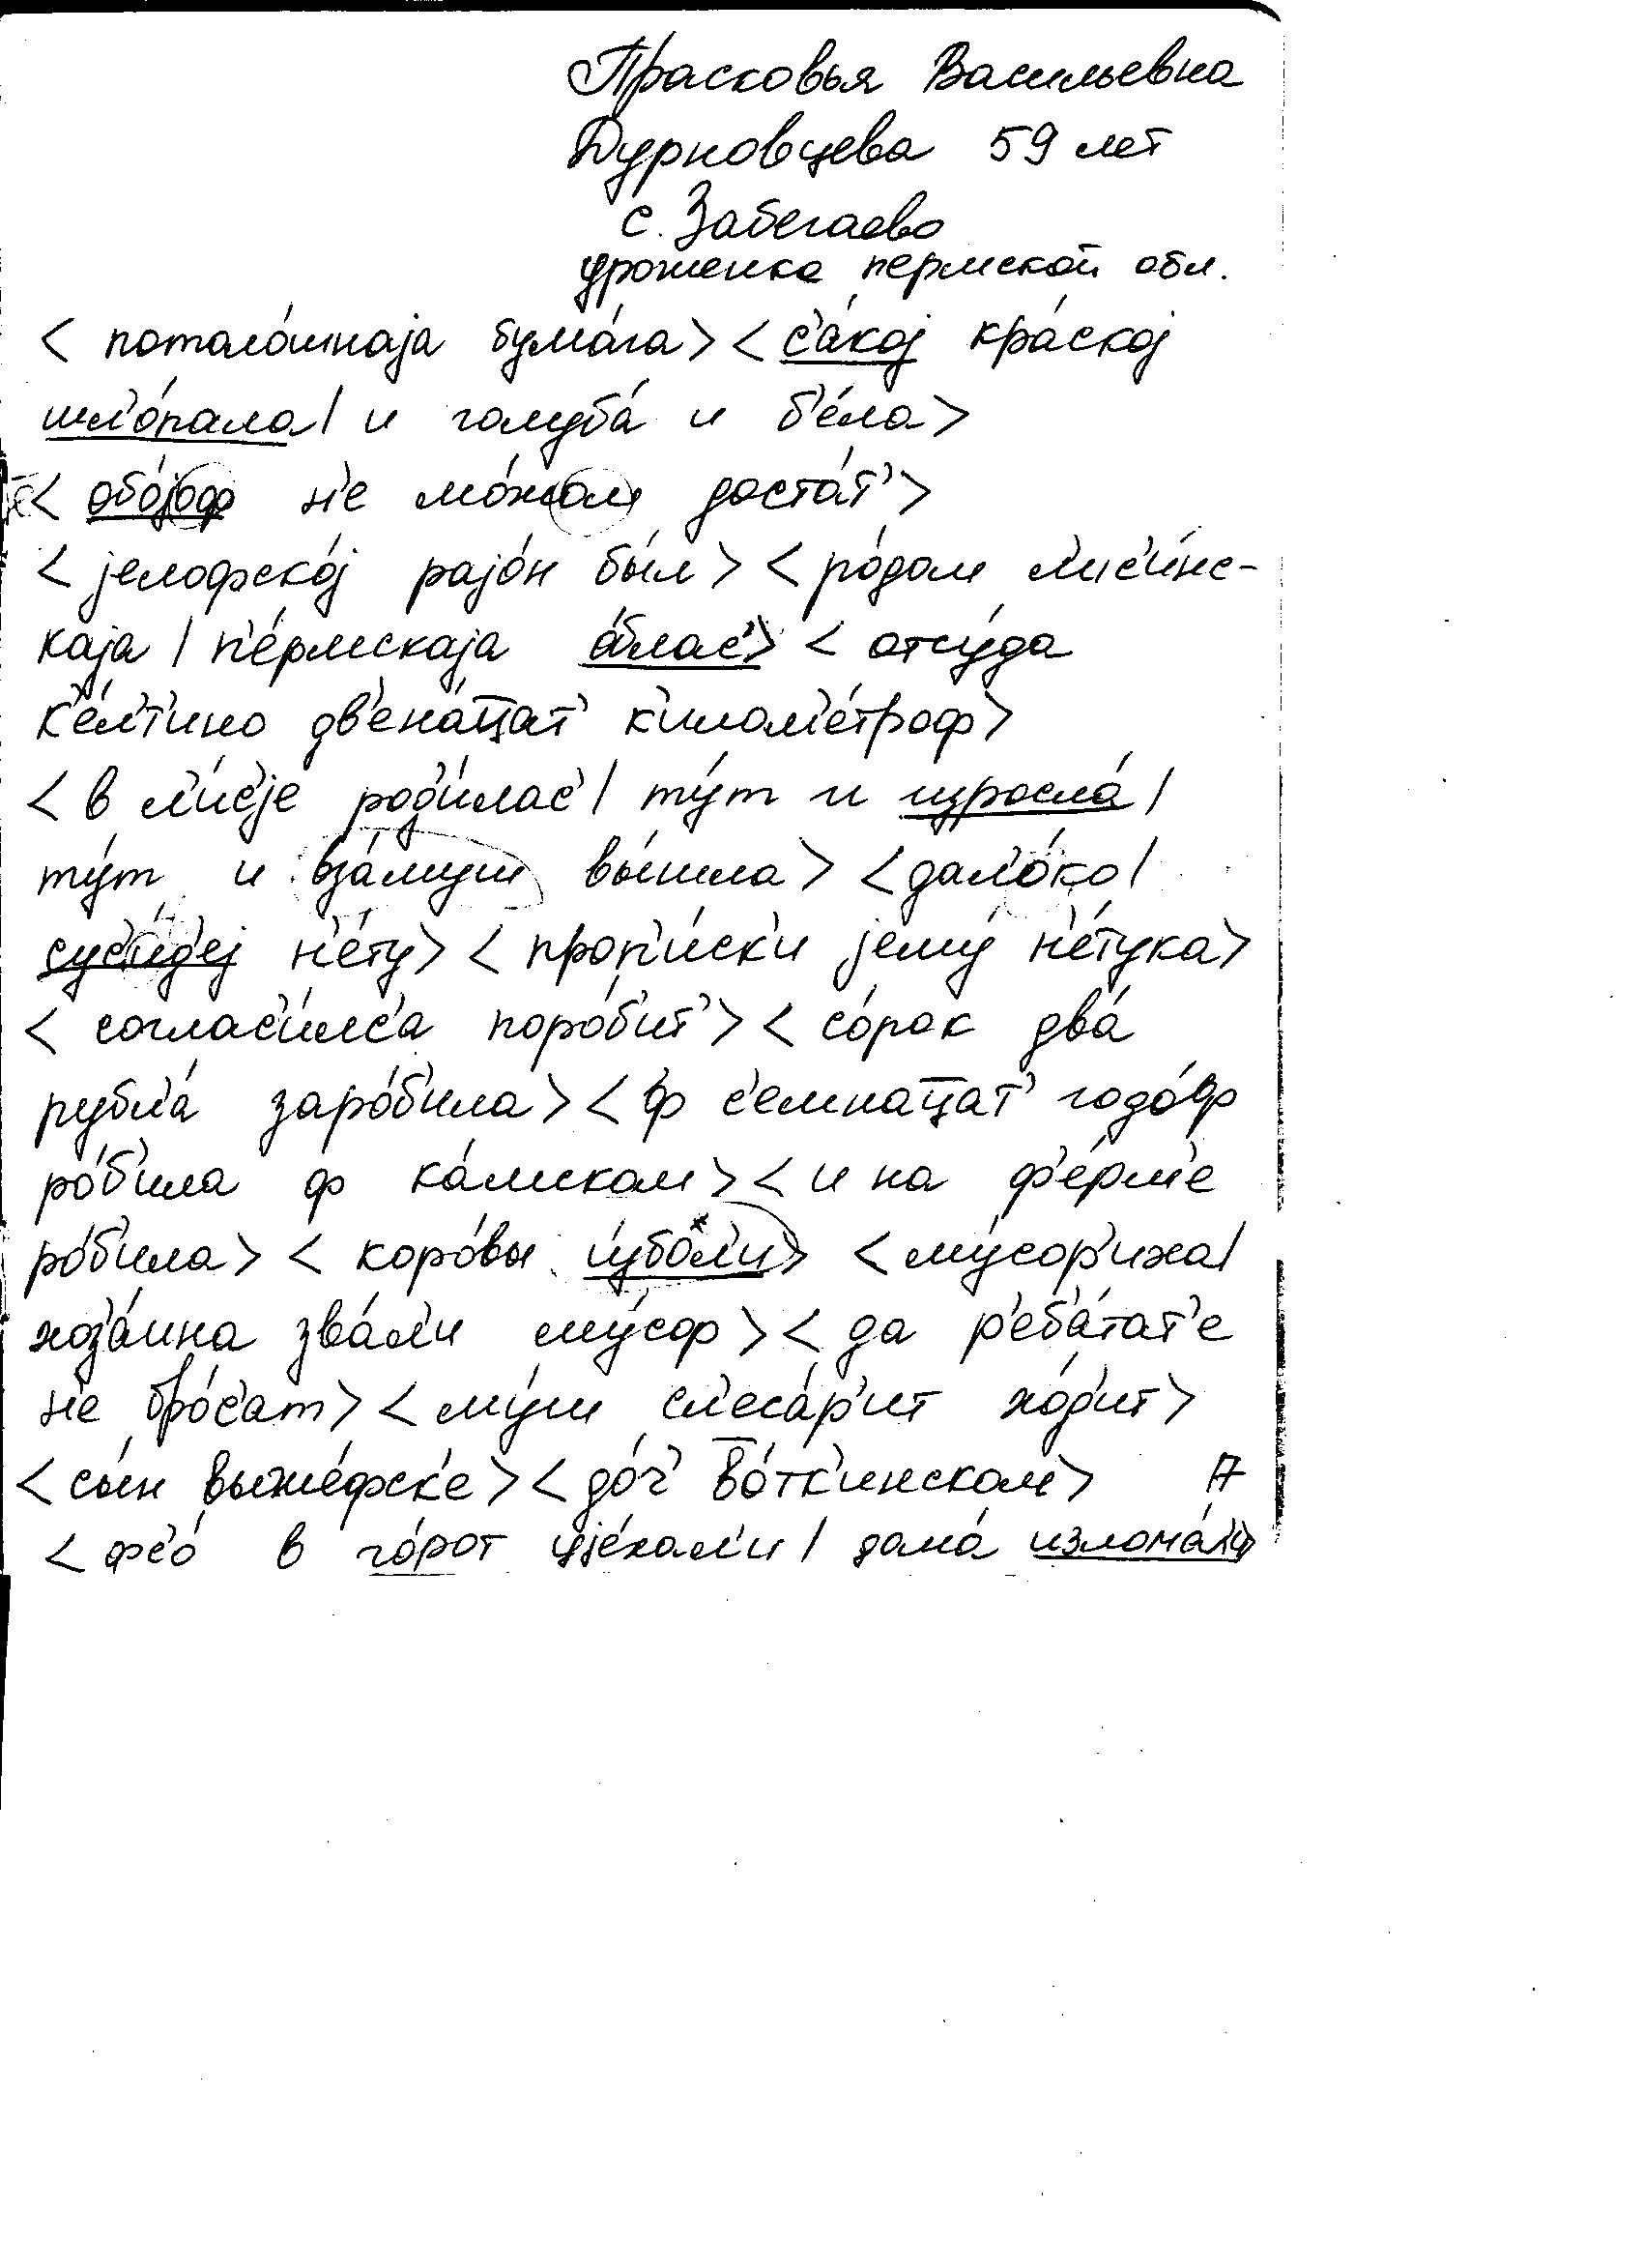 Прасковья Васильевна
Дурновцева 59 лет
с. Забегаево
уроженка пермской обл.
< потоло́шнаjа бума́га> < с'а́коj кра́скоj
шл'о́пала | и голуба́ и б'е́ла>
< обо́jоф н'е мо́жом доста́т'>
< jелофско́j раjо́н бы́л > < ро́дом л'ис'и́нс-
каjа | п'е́рмскаjа о́блас'> < отсу́да
к'е́л'т'ино дв'ена́цат' к'илом'е́троф>
< в л'и́с'jе род'и́лас' | ту́т и изросла́ |
ту́т и вза́муш вы́шла > < дал'о́ко |
сус'и́д'еj н'е́ту> < проп'и́ск'и jему́ н'е́тука>
< соглас'и́лс'а поро́б'ит'> < со́рок два́
рубл'а́ заро́б'ила > < ф с'емнацат' годо́ф
ро́б'ила ф ка́мском > < и на ф'е́рм'е
ро́б'ила> < коро́вы <мусор'иха |
хоз'а́ина зва́л'и му́соф > < да р'еб'а́тат'е
н'е бро́с'ат> < му́ш сл'еса́р'ит хо́д'ит>
< сы́н выже́фск'е > < до́ч' во́тк'инском>
< фс'о́ в го́рот уjе́хал'и | дома́ излома́л'и>